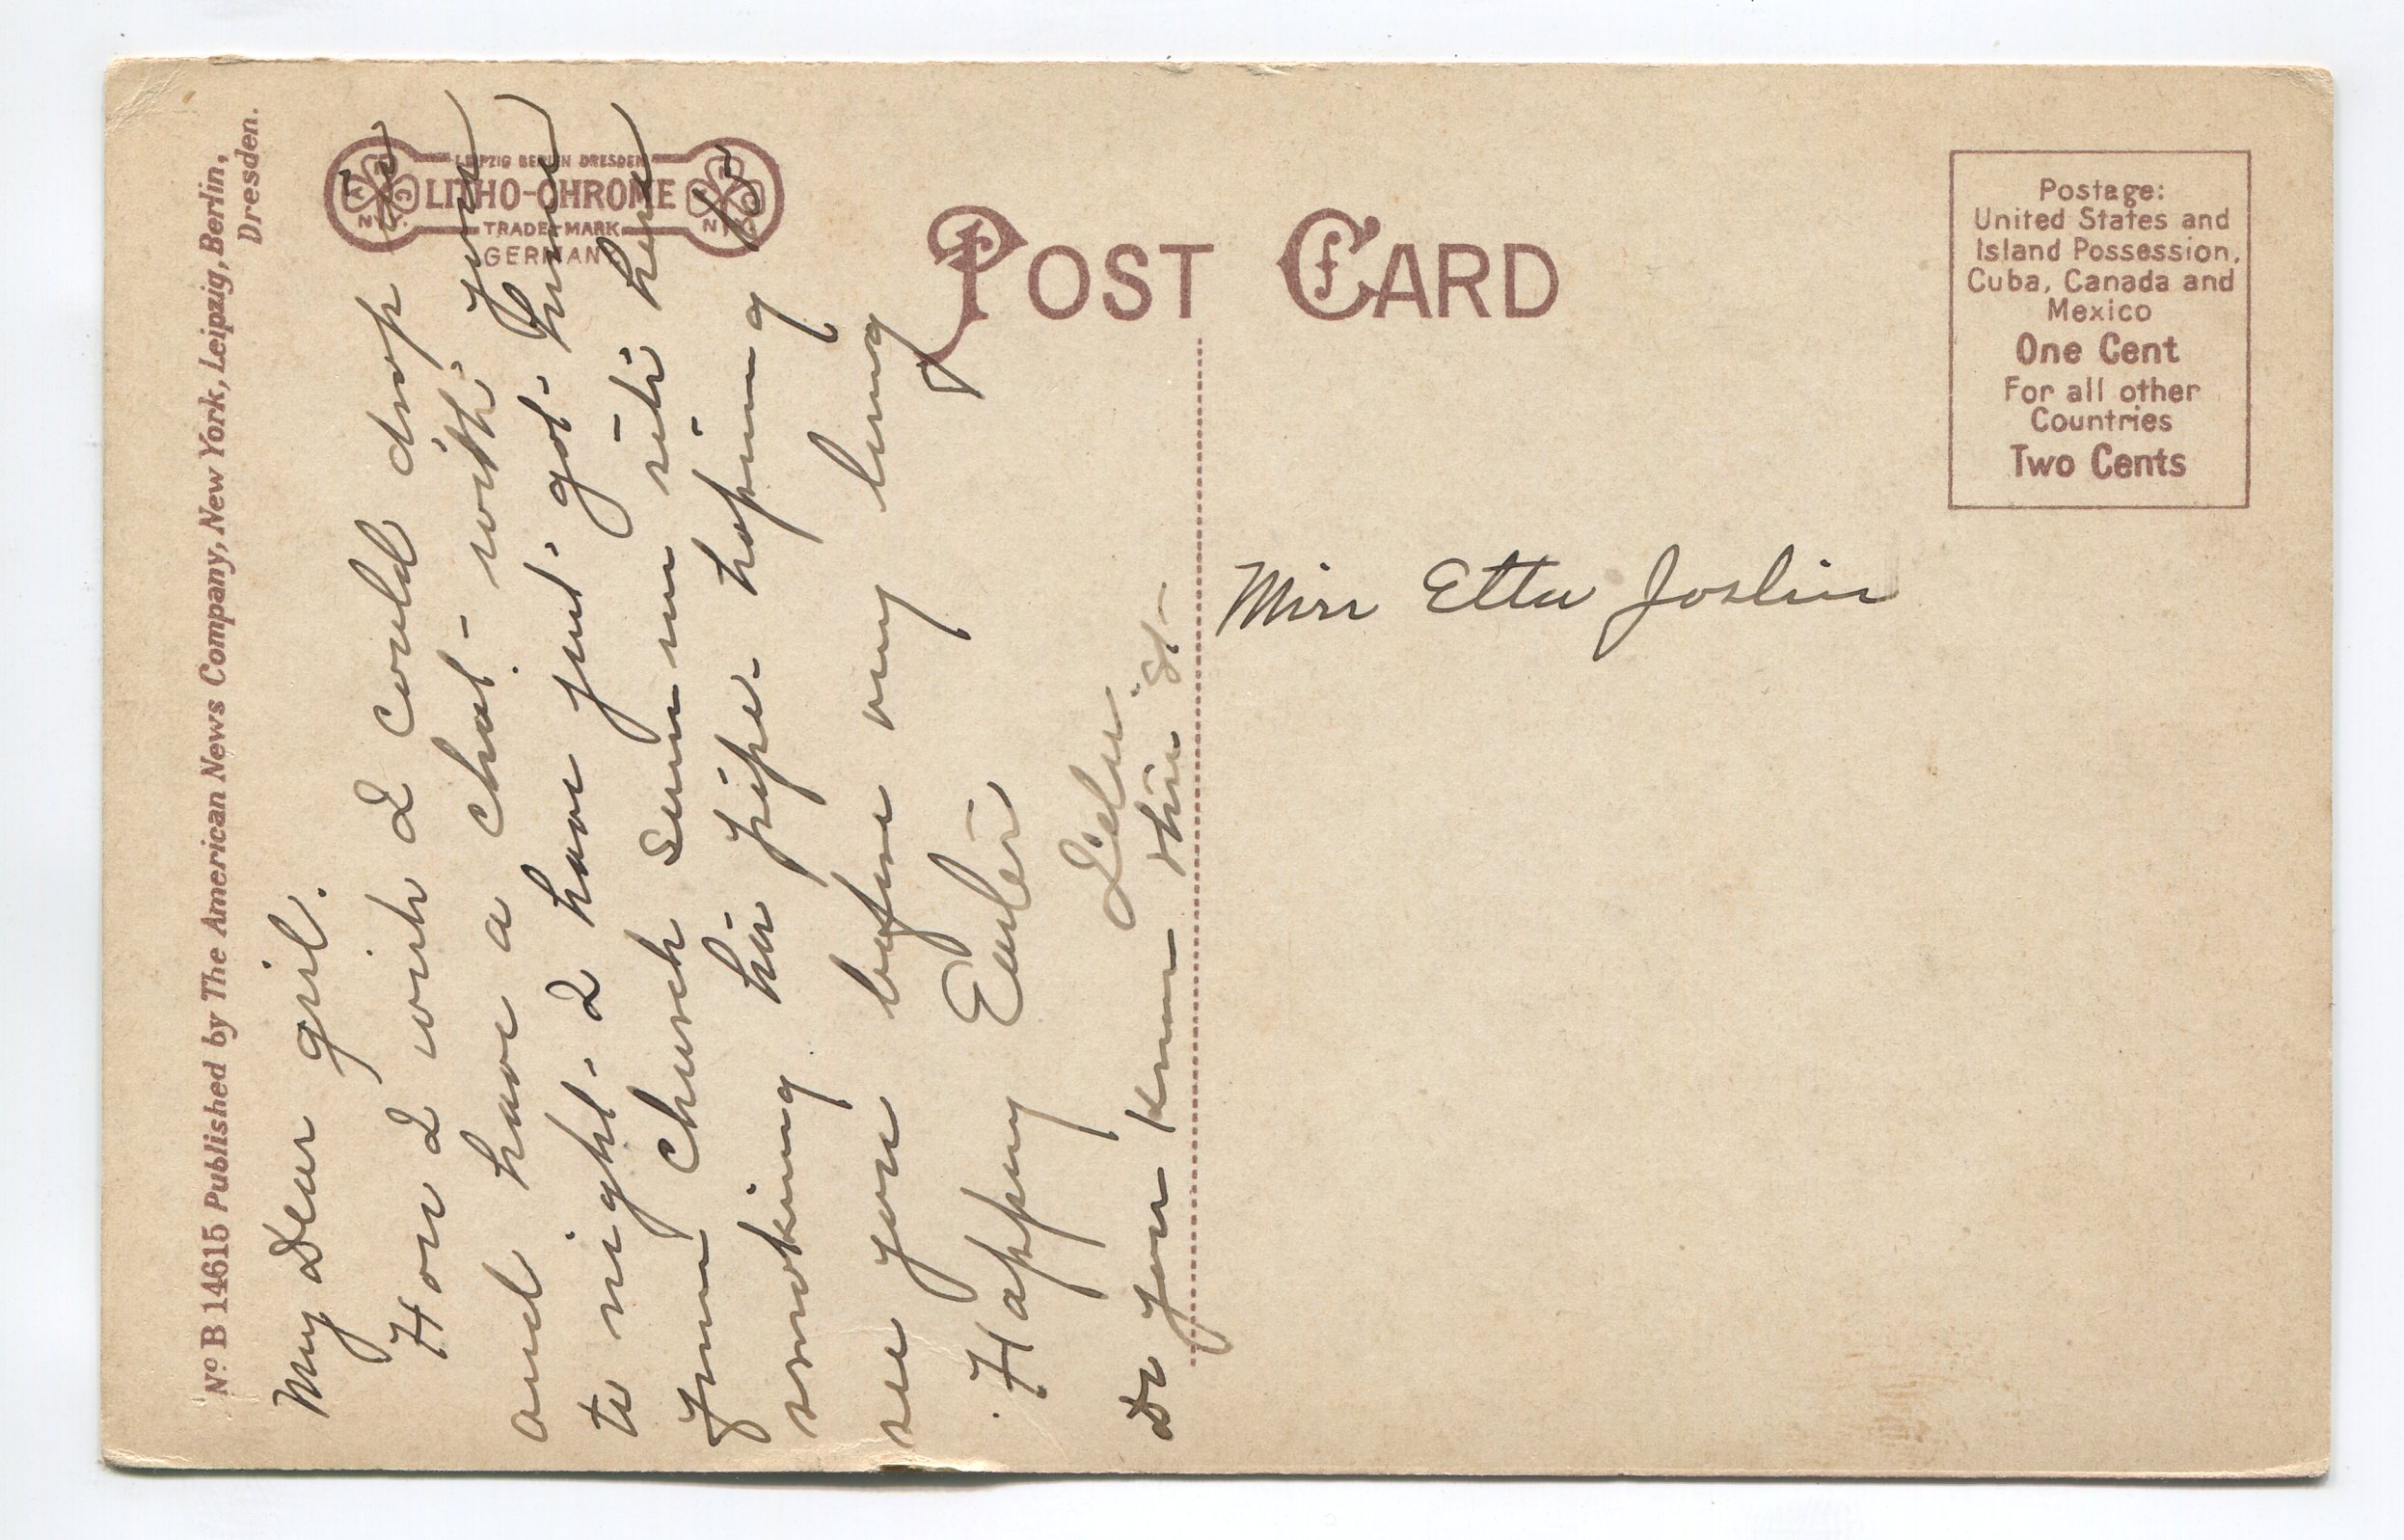 No B 14615 Published by The American News Company, New York, Leipzig, Berlin,
Dresden.
LEIPZIG BERLIN DRESDEN
LITHO-CHROME
TRADE MARK
GERMANY
POST CARD
Postage:
United States and
Island Possession,
Cuba, Canada and
Mexico
One Cent
For all other
Countries
Two Cents
My Dear girl.
How I wish I could drop in
and have a chat with you
to night. I have just got home
from church Sumner sits here
smoking his pipe. hoping to
see you before very long
Happy Easter
Lelia.
Do you know this St
Miss Etta Joslin